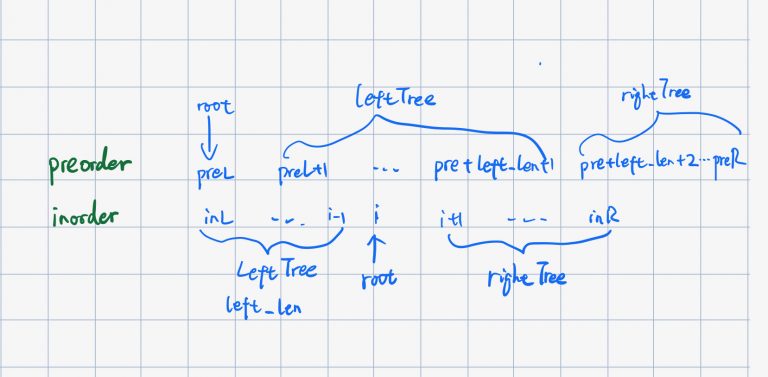 leftTree
rightTree
root
preorder preL preL+1 ... pre+left_len+1 pre+left_len+2...preR
inorder inL ... i-1 i i+1 ... inR
LeftTree
root
rightTree
left_len